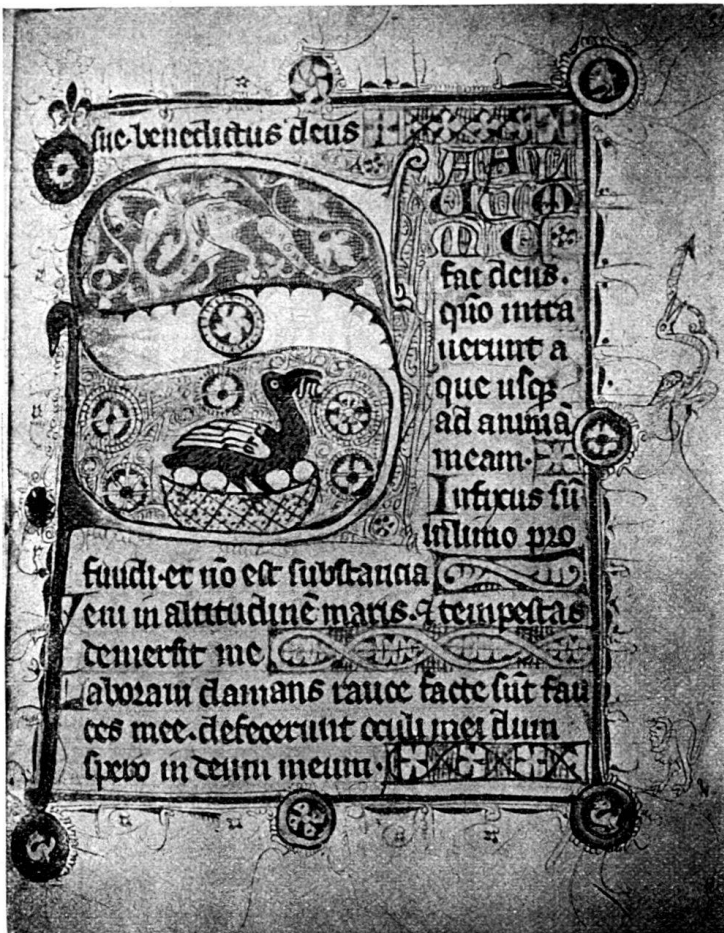 sue·benedictus deus
S
fac deus·
qūo intra
uerunt a
que usq̄
ad animā
meam·
Infixus sū
limo pro
fundi·et nō est substancia
Veni in altitudinē maris·⁊ tempestas
demersit me
Laboraui clamans rauce facte sūt fau
ces mee·defecerunt oculi mei dum
spero in deum meum·